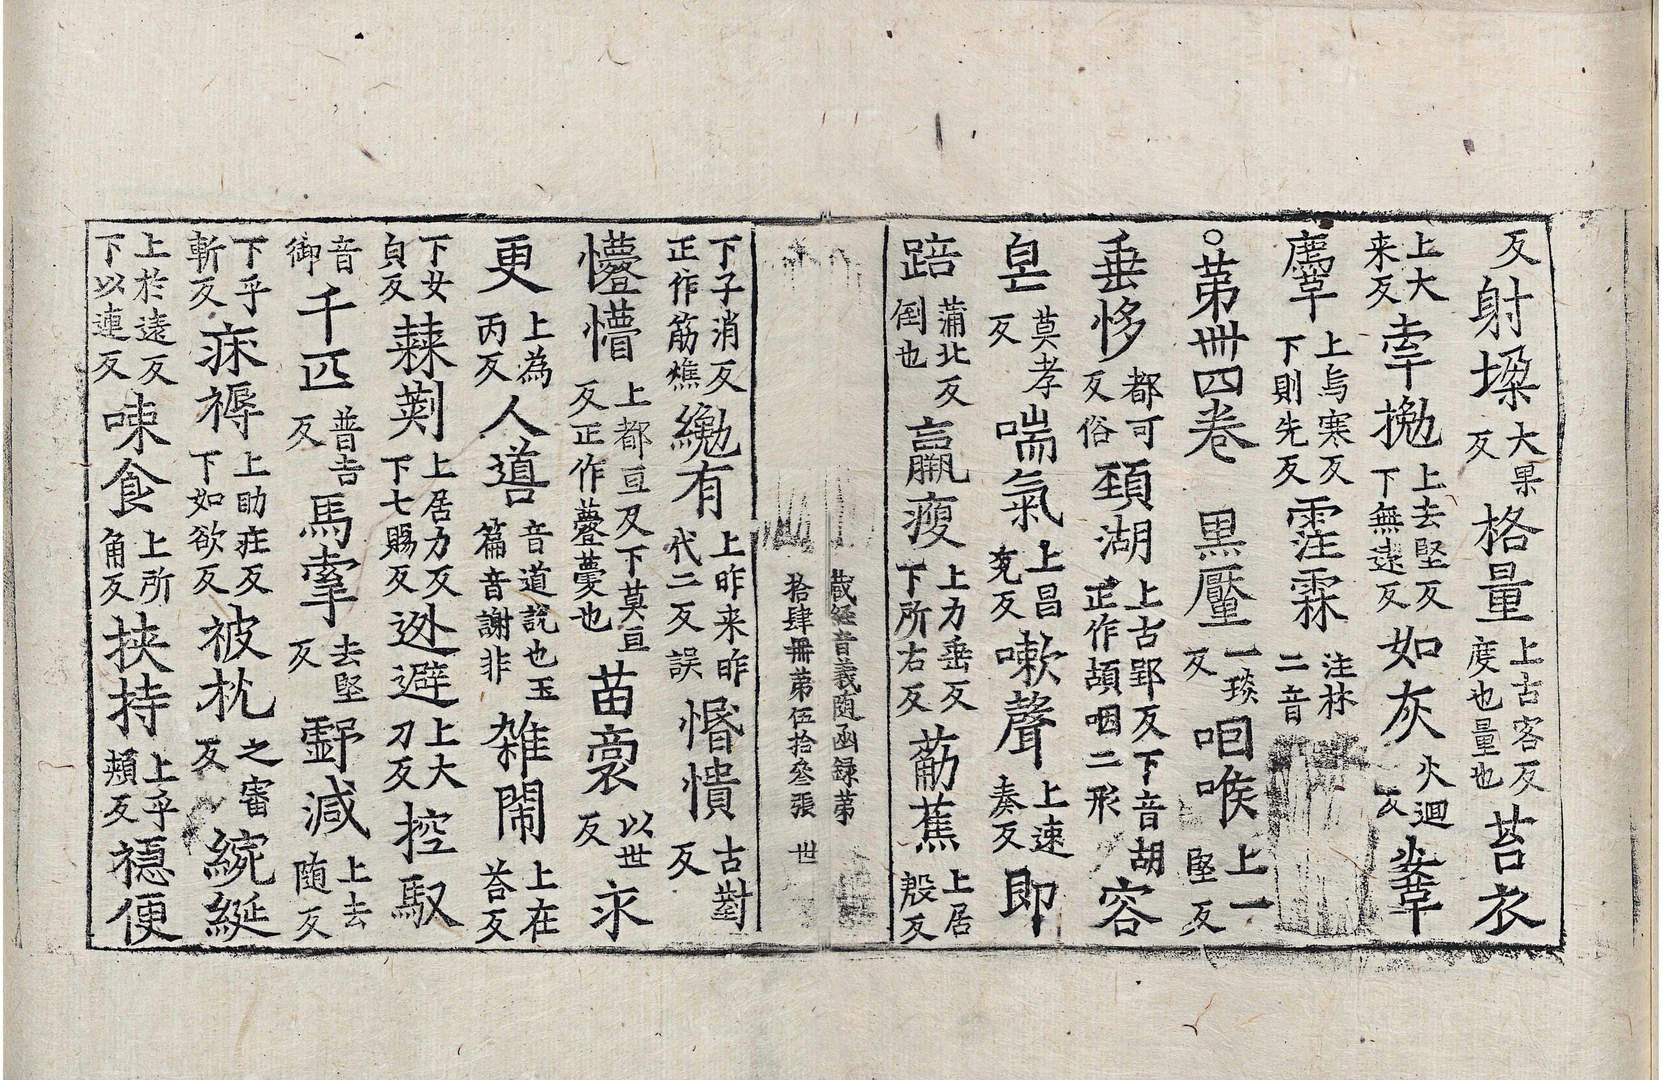 反射垜大果反格量上古客反度也量也苔衣
上大来反牽㧾上去堅反下無遠反如灰火迴反
上烏寒反下則先反霔霖注林二音
○苐卌四卷 黒黶一琰反咽喉上一堅反
垂㖼都可反俗頚湖上古郢反下音胡正作頡咽二形容
皃莫孝反喘氣上昌兖反嗽聲上速奏反即
踣蒲北反倒也羸瘦上力垂反下所右反莇蕉上居殷反
藏經音義随函録苐
拾肆冊苐伍拾叄張 世
下子消反正作筋憔纔有上昨来昨代二反誤惛憒古對反
懵上都亘反下莫亘反正作䔲薨也苗裔以世反永
更上為丙反人噵音道說也玉篇音謝非雜閙上在荅反
下女貞反棘剌上居力反下七賜反迯避上大刀反控馭
音御千匹普吉反馬牽去堅反虧減上去随反
下乎斬反疩褥上助疰反下如欲反被枕之審反綩綖
上於遠反下以連反唻食上所角反挾持上乎頰反穏便